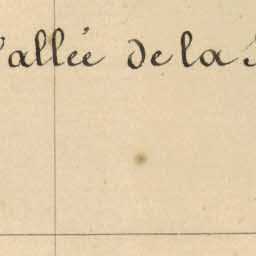 allée de la